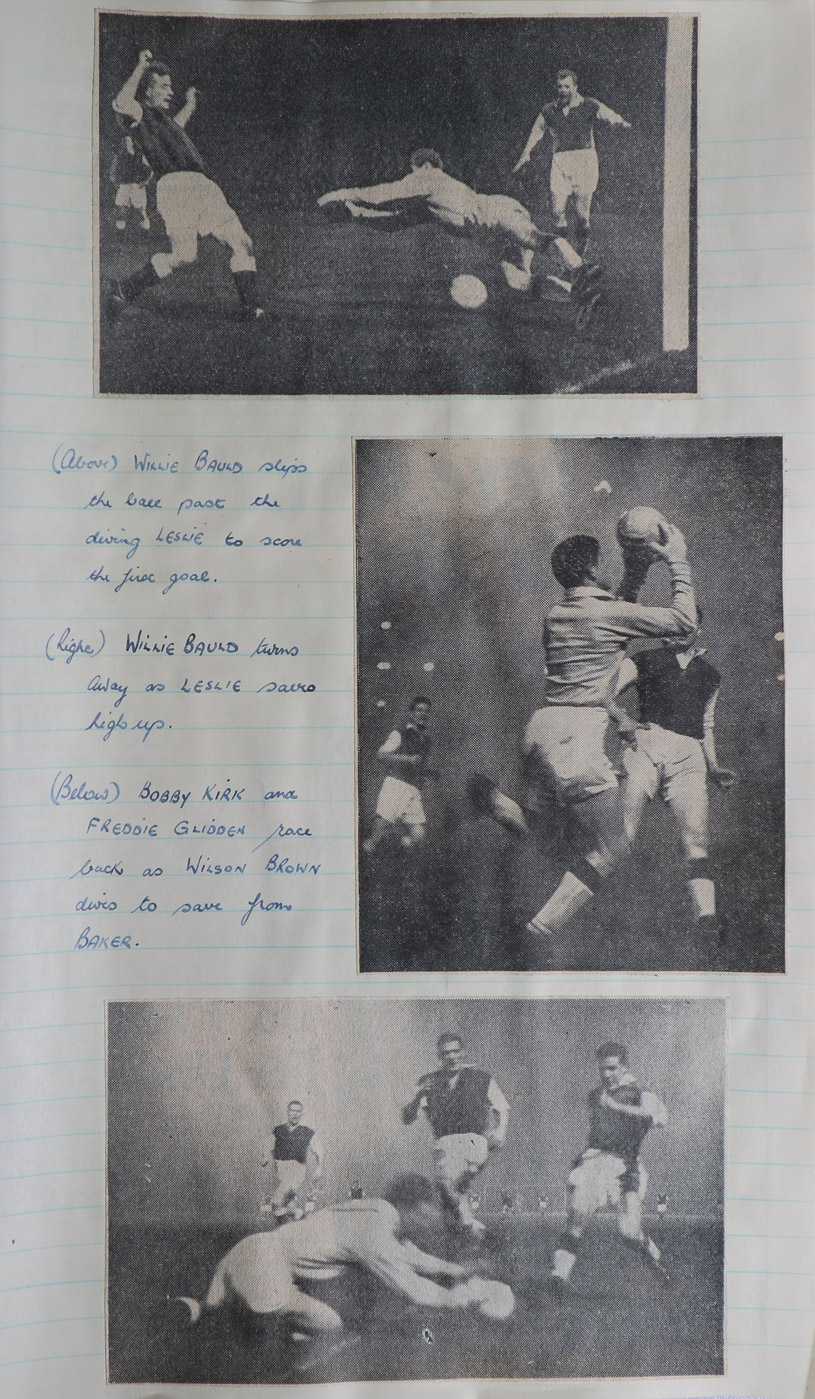 (Above) WILLIE BAULD slips
the ball past the
diving LESLIE to score
the first goal.
(Right) WILLIE BAULD turns
away as LESLIE saves
high up.
(Below) BOBBY KIRK and
FREDDIE GLIDDEN race
back as WILSON BROWN
dives to save from
BAKER.